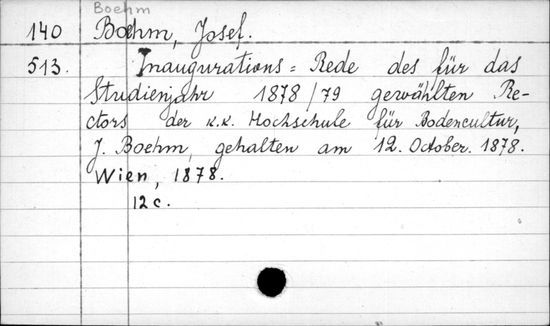 Boehm
140 Boehm, Josef.
513. Inaugurations=Rede des für das
Studienjahr 1878/79 gewählten Re-
ctors der K.K. Hochschule für Bodencultur,
J. Boehm, gehalten am 12. October. 1878.
Wien, 1878.
12 c.